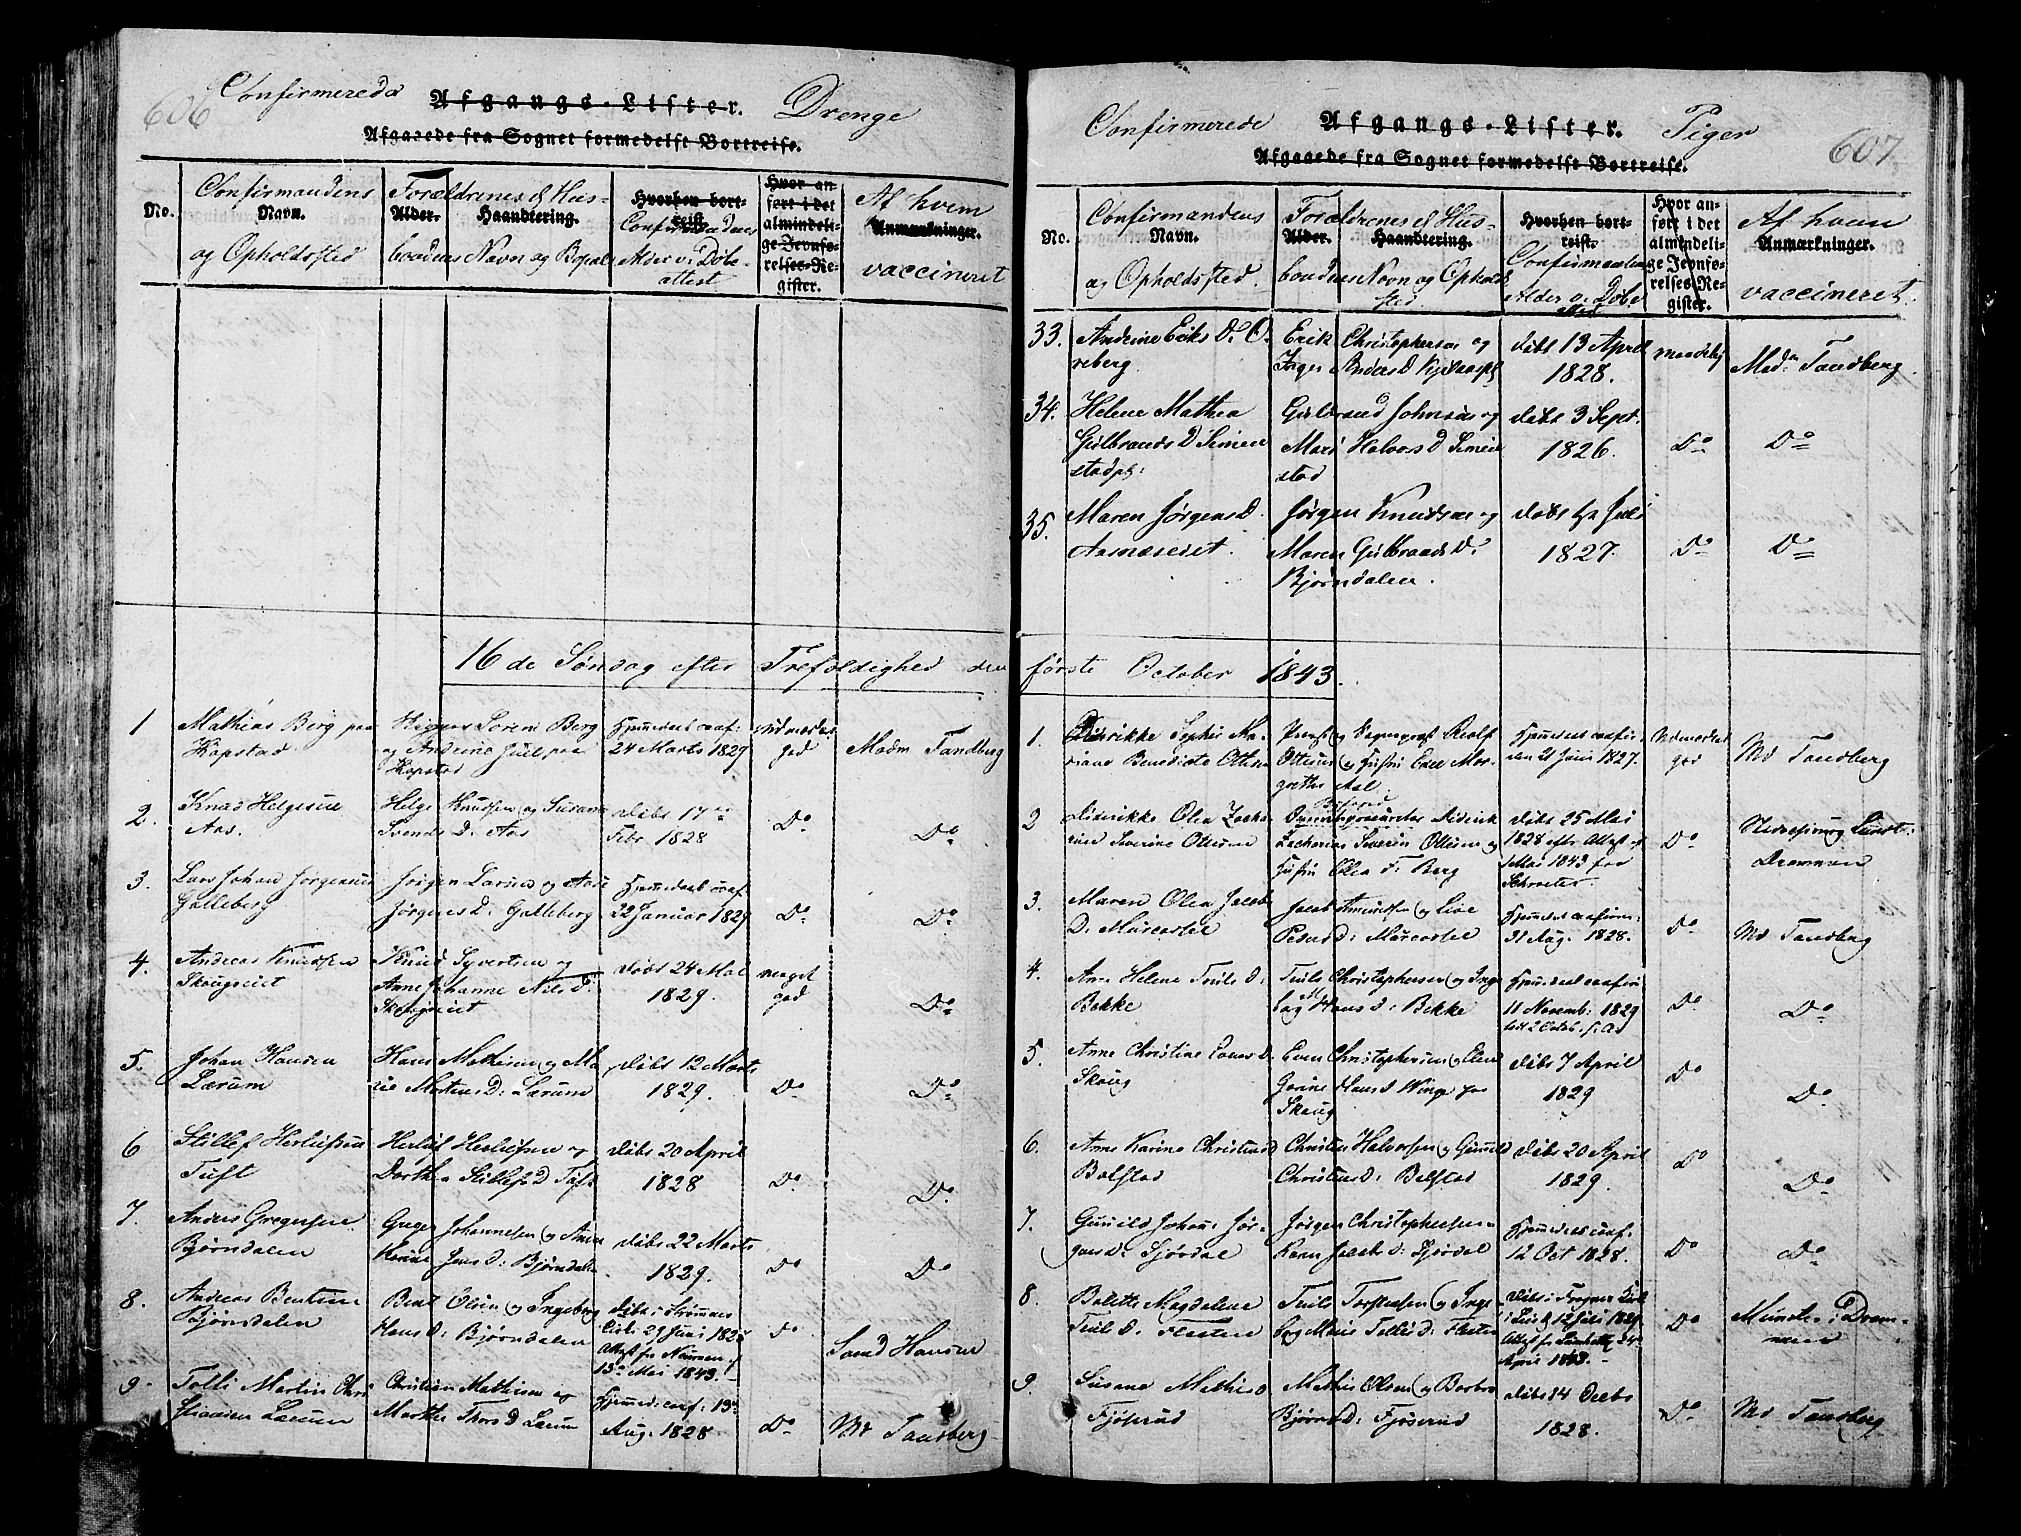 606
Confirmerede Afgangs-Lister. Drenge
Afgaaede fra Sognet formedelst Bortreise.
No.
Confirmandens
Navn.
og Opholdssted
Forældrenes el Hus-
Alder. Haandtering.
bondens Navn og Bopæl
Hvorhen bort-
reist.
Confirmandens
Alder v. Døbe-
attest
Hvor an-
ført i det
almindeli-
ge Jevnfø-
relses-Re-
gister.
Af hvem
Anmærkninger.
vaccineret
16 de Søndag efter Trefoldighed den
1
Mathias Berg paa
Kopstad
Søren Berg
og Andrine Juel paa
Kopstad
Hjemmedøbt
24 Marts 1829
Udmærket
god
Madm Tandberg
2.
Knud Helgesen
Aas.
Helge Knudsen og Susanne
Svends D. Aas
døbt 17de
Febr 1828
Do
Do
3.
Lars Johan Jørgensen
Galleberg
Jørgen Larsen og Anne
Jørgens D: Galleberg
Hjemmedøbt
22 Januar 1829
Do
Do
4.
Andreas Knudsen
Skougseiet
Knud Syvertsen og
Anne Johanne Nils D:
Skougseiet
døbt 24 Mai
1829.
meget
god
Do
5.
Johan Hansen
Lærum
Hans Mathisen og Ma-
rie Mortens D: Lærum
døbt 12 Marts
1829.
Do
Do
6
Stillef Herlufsen
Tuft
Herluf Herlufsen og
Dorthea Stillefs D Tuft
døbt 20 April
1828
Do
Do
7.
Anders Gregersen
Bjørndalen
Greger Johannesen og Anne
Kerine Jens D: Bjørndalen
døbt 22 Marts
1829.
Do
Do
8.
Andreas Bentsen
Bjørndalen
Bent Olsen og Ingeborg
Hans D: Bjørndalen
døbt i Strømmes
Kirke 29 Juni 182
Attest fra
13de Mai 1843.
Do
Hansen
9
Tolli Martin Chri-
stiansen Lærum
Christian Mathisen og
Marthe Thors D Lærum
Hjemmedøbt 13de
Aug. 1828
Do
Md Tandberg
607
Confirmerede Afgangs-Lister. Piger
Afgaaede fra Sognet formedelst Bortreise.
No.
Confirmandens
Navn.
og Opholdssted.
Forældrenes el Hus-
Alder. Haandtering.
bondens Navn og Ophold-
sted
Hvorhen bort-
reist.
Confirmandens
Alder v. Døbe
attest
Hvor an-
ført i det
almindeli-
ge Jevnfø-
relses-Re-
gister.
Af hvem
Anmærkninger.
vaccineret.
33.
Andrine Eriks D. O-
reberg.
Erik Christophersen og
Inger Anders D
døbt 13 April
1828.
maadelig
Mad. Tandberg
34.
Helene Mathea
Gulbrands D Simen
stadpl:
Gulbrand Johnsen og
Mari Halvors D Simen
stad
døbt 3 Sept.
1826.
Do
Do
35.
Maren Jørgens D.
Aasnæseiet.
Jørgen Knudsen og
Maren Gulbrands D.
Bjørndalen.
døbt Juli
1827.
Do
Do
første October 1843.
1.
Didrikke Sophie Ma-
riane Benedicte Ottesen
Provst og Sogneprest Rolf
Ottesen og Hustru Edle Mar-
grethe Aal.
Hjemmedøbt
den 21 Juni 1827.
Udmærket
god
Md Tandberg
2
Didrikke Olea Zacha-
rine Severine Ottesen
Diderik
Zacharias Severin Ottesen og
Hustru Olea F. Berg
døbt 25 Mai
1828 efter Attest
Mai 1843 fra
Schroeter
Do
Drammen
3.
Maren Olea Jacobs
D. Murcastel
Jacob Amundsen og Lise
Peders D: Murcastel
Hjemmedøbt
31 Aug. 1828.
Do
Md Tandberg
4.
Anne Helene Truls D:
Bekke
Truls Christophersen og Inge
borg Hans D: Bekke
Hjemmedøbt
11 Novemb: 1829
Do
Do
5.
Anne Christine Evens D
Skoug
Even Christophersen og Elen
Gorine Hans D Winge paa
Skoug
døbt 7 April
1829
Do
Do
6.
Anne Karine Christens D
Bolstad
Christen Halvorsen og Gunild
Christens D: Bolstad
døbt 20 April
1829.
Do
Do
7.
Gunild Johanne Jør-
gens D: Fjørdal
Jørgen Christophersen
Karen Jacobs D: Fjørdal
Hjemmedøbt
12 Oct 1828.
Do
Do
8.
Bolette Magdalene
Truls D. Flesten
Truls Torstensen og Inge
borg Marie Tollis D: Flesten
døbt i Fragner Kirke
12 Juli
Attest fra
April 1843.
Do
Munster i Dram-
men
9.
Susane Mathis D
Fjøsrud
Mathis Olsen og Barbro
Bjørns D: Fjøsrud
døbt 14 Octbr
1828.
Do
Md Tandberg